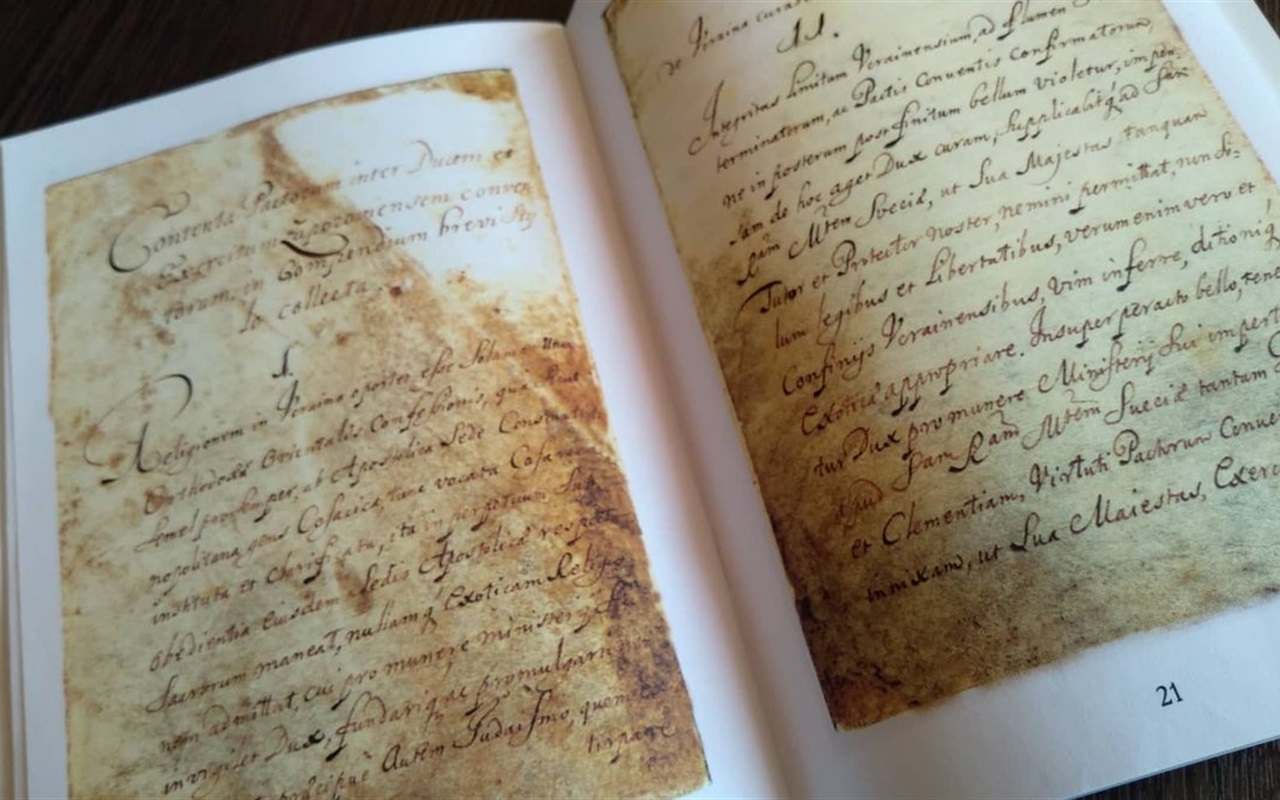 Contenta Pactorum inter Ducem et
Exercitum Zaporoviensem conven
torum, in Compendium brevi sty
lo collecta.
1.
Religionem in Ucraina oportet esse
Orthodoxae Orientalis Confessionis, qua
semel pro semper, ab Apostolica Sede Constantino
politana gens Cosacica, tunc vocata
instituta et clarificata, ita in perpetuum
obedientia eiusdem Sedis Apostolicae respectu
Sacrorum maneat, nullamq́ Exoticam
non admittat, cui pro munere ministerij
invigilet Dux, fundariq́ ac promulgari
Autem Judaismo, quem
Ucraina
de
11.
Integritas limitum Ucrainensium, ad flumen
terminatorum, ac Pactis Conventis confirmatorum,
ne in posterum post finitum bellum violetur, impen
sam de hoc aget Dux curam, supplicabitq́ ad Sacr
Ram Mtem Sveciae, ut Sua Majestas tanquam
Tutor et Protector noster, nemini permittat, non so=
lum legibus et Libertatibus, verum enim vero et
Confinijs Ucrainensibus, vim inferre, ditioniq́
Exoticae appropriare. Insuper peracto bello, tene
tur Dux pro munere Ministerij sui impert
apud Sam Ram Mtem Sueciae tantum
et Clementiam, Virtuti Pactorum Conve
innixam, ut Sua Maiestas, Exerc
21